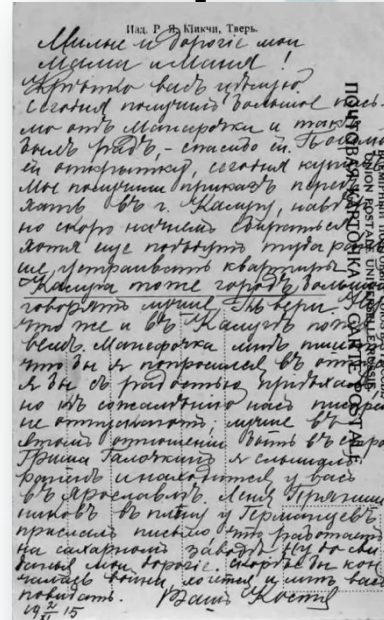 Изд. Р. Я. Кикчи, Тверь.
Милые и дорогіе мои
Мама и Маня!
Крѣпко васъ цѣлую.
Сегодня получилъ большое пись-
мо отъ Манефочки и такъ
былъ радъ, - спасибо ей.
ей открытку, сегодня
Мы получили приказъ
въ г. Калугу,
но скоро начнемъ собираться
хотя еще поѣдутъ туда
ше, устраивать квартиры
Калуга тоже городъ, большой
говорятъ лучше Твери.
что же и въ Калугѣ
Манефочка мнѣ
что бы я попросился въ
я бы съ радостью
но къ сожалѣнію насъ
не отпускаютъ, лучше въ
этомъ отношеніи быть въ
Гриша Галочкинъ я слышалъ
раненъ и находится у васъ
въ Ярославлѣ. Леня
никовъ въ плѣну у Германцевъ
прислалъ письмо что работаетъ
на сахарномъ заводѣ. Ну до сви
данья мои дорогіе. Скорѣе бы кон
чилась война, хочется и мнѣ васъ
повидать. Вашъ Костя
19 2/XI 15
ПОЧТОВАЯ КАРТОЧКА. CARTE POSTALE
UNION POSTALE UNIVERSELLE RUSSIE